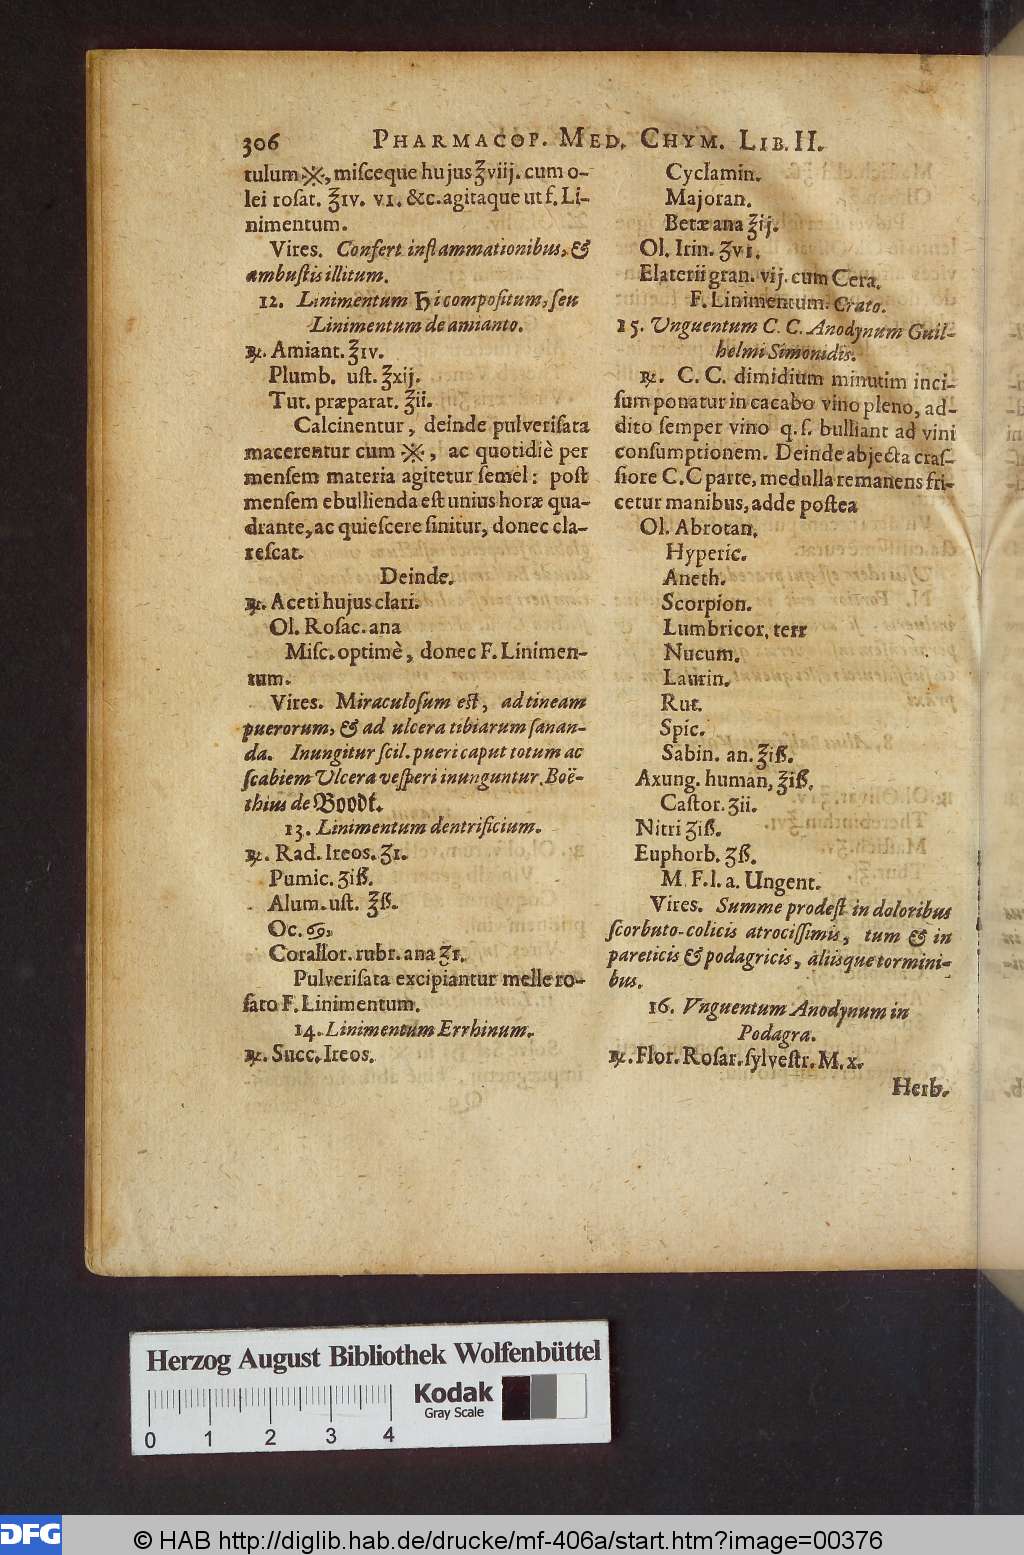 306 PHARMACOP. MED. CHYM. LIB. II.
tulum ※, miſceque hujus ℥viij. cum o-
lei roſat. ℥iv. vi. &c. agitaque ut f. Li-
nimentum.
Vires. Confert inflammationibus, &
ambuſtis illitum.
12. Linimentum ♄i compoſitum, ſeu
Linimentum de amianto.
℞. Amiant. ℥iv.
Plumb. uſt. ℥xij.
Tut. præparat. ℥ii.
Calcinentur, deinde pulveriſata
macerentur cum ※, ac quotidiè per
menſem materia agitetur ſemel: poſt
menſem ebullienda eſt unius horæ qua-
drante, ac quieſcere ſinitur, donec cla-
reſcat.
Deinde.
℞. Aceti hujus clari.
Ol. Roſac. ana
Miſc. optimè, donec F. Linimen-
tum.
Vires. Miraculoſum eſt, ad tineam
puerorum, & ad ulcera tibiarum ſanan-
da. Inungitur ſcil. pueri caput totum ac
ſcabiem Ulcera veſperi inunguntur. Boë-
thius de Boodt.
13. Linimentum dentrificium.
℞. Rad. Ireos. ʒi.
Pumic. ʒiß.
Alum. uſt. ℥ß.
Oc. ♋.
Corallor. rubr. ana ʒi.
Pulveriſata excipiantur melle ro-
ſato F. Linimentum.
14. Linimentum Errhinum.
℞. Succ. Ireos.
Cyclamin.
Majoran.
Betæ ana ℥ij.
Ol. Irin. ʒvi.
Elaterii gran. vij. cum Cera.
F. Linimentum. Crato.
15. Vnguentum C. C. Anodynum Guil-
helmi Simonidis.
℞. C. C. dimidium minutim inci-
ſum ponatur in cacabo vino pleno, ad-
dito ſemper vino q. ſ. bulliant ad vini
conſumptionem. Deinde abjecta craſ-
ſiore C. C parte, medulla remanens fri-
cetur manibus, adde poſtea
Ol. Abrotan.
Hyperic.
Aneth.
Scorpion.
Lumbricor. terr
Nucum.
Laurin.
Rut.
Spic.
Sabin. an. ℥iß.
Axung. human, ℥iß.
Caſtor. ʒii.
Nitri ʒiß.
Euphorb. ʒß.
M. F. l. a. Ungent.
Vires. Summe prodeſt in doloribus
ſcorbuto-colicis atrociſſimis, tum & in
pareticis & podagricis, aliisque tormini-
bus.
16. Vnguentum Anodynum in
Podagra.
℞. Flor. Roſar. ſylveſtr. M. x.
Herb.
Herzog August Bibliothek Wolfenbüttel
Kodak
Gray Scale
0 1 2 3 4
DFG
© HAB http://diglib.hab.de/drucke/mf-406a/start.htm?image=00376